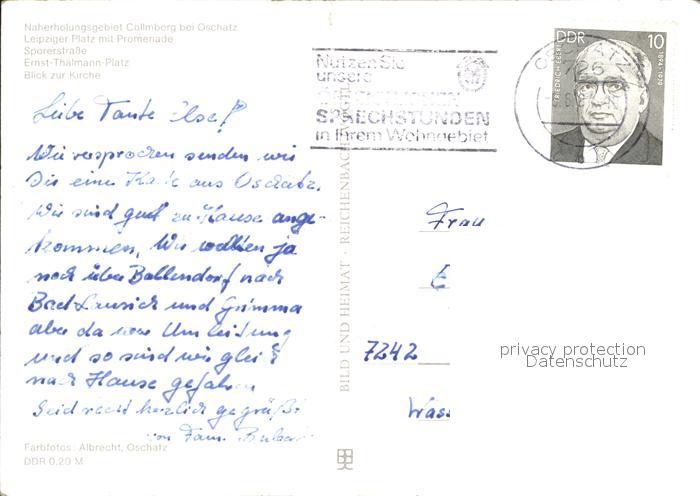 Naherholungsgebiet Collmberg bei Oschatz
Leipziger Platz mit Promenade
Sporerstraße
Ernst-Thälmann-Platz
Blick zur Kirche
Liebe Tante Ilse!
Wie versprochen senden wir
Dir eine Karte aus Oschatz.
Wir sind gut zu Hause ange-
kommen. Wir wollten ja
noch über Ballendorf nach
Bad Lausick und Grimma
aber da war Umleitung
und so sind wir gleich
nach Hause gefahren
Seid recht herzlich gegrüßt
von Fam.
Farbfotos: Albrecht, Oschatz
DDR 0,20 M
BILD UND HEIMAT · REICHENBACH
Nutzen Sie
unsere
SPRECHSTUNDEN
in Ihrem Wohngebiet
OSCHATZ
726
DDR 10
FRIEDRICH EBERT
1894-1979
Frau
E
7242
privacy protection
Datenschutz
Was